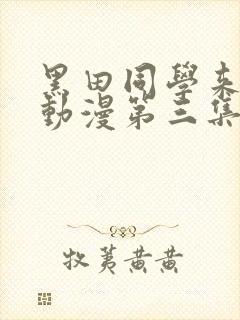 黑田同學來
動漫第三集
牧荑黃黃